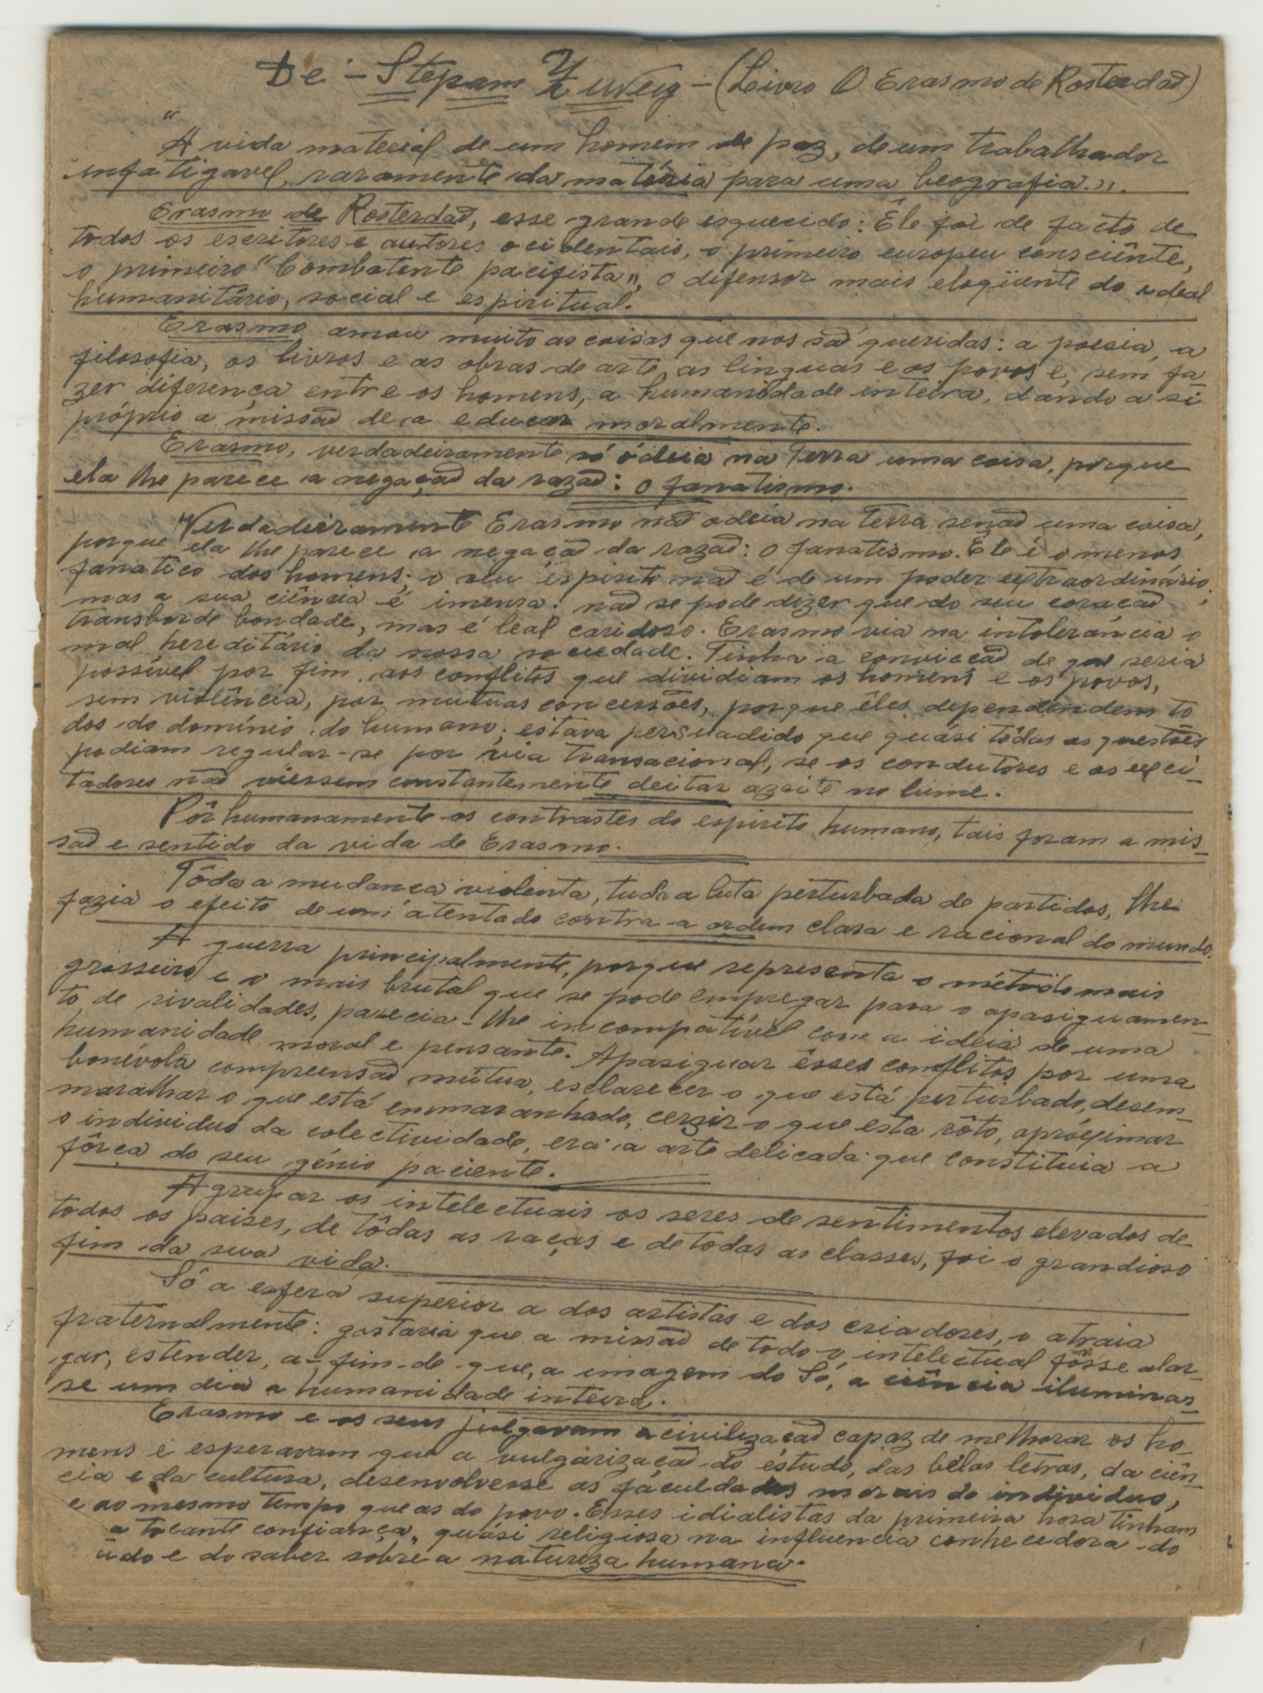 De - Stepam Zuweig - (Livro O Erasmo de Rosterdad)
"A vida material de um homem de paz, de um trabalhador
infatigavel, raramente da matéria para uma beografia.".
Erasmo de Rosterdad, esse grande esquecido: Êle foi de facto de
todos os escritores e autores ocidentais, o primeiro europeu consciênte,
o primeiro "Combatente pacifista", o difensor mais eloqüente do ideal
humanitário, social e espiritual.
Erasmo amou muito as coisas que nos sad queridas: a poesia, a
filosofia, os livros e as obras de arte, as linguas e os povos e, sem fa
zer diferença entre os homens, a humanidade inteira, dando a si
próprio a missad de a educar moralmente.
Erasmo, verdadeiramente só ódeia na Terra uma coisa, porque
ela lhe parece a negaçad da razad: o fanatismo.
"Verdadeiramente Erasmo nad odeia na Terra senad uma coisa,
porque ela lhe parece a negaçad da razad: o fanatismo. Ele é o menos
fanatico dos homens; o seu espirito nad é de um poder extraordinário,
mas a sua ciência é imensa: nad se pode dizer que do seu coraçad
transborde bondade, mas é leal caridoso. Erasmo via na intolerância o
mal hereditário da nossa sociedade. Tinha a convicçad de que seria
possivel por fim aos conflitos que dividiam os homens e os povos,
sem violência, por mutuas concessões, porque êles dependendem to
dos do dominio do humano; estava persuadido que quasi tôdas as questões
podiam regular-se por via transacional, se os condutores e os exci-
tadores nad viessem constantemente deitar azeite no lume.
Pôr humanamente os contrastes do espirito humano, tais foram a mis-
sad e sentido da vida de Erasmo.
Tôda a mudança violenta, tuda a luta perturbada de partidos, lhe
fazia o efeito de um atentado contra a ordem clara e racional do mundo.
A guerra principalmente, porque representa o método mais
grosseiro e o mais brutal que se pode empregar para o apasiguamen-
to de rivalidades, parecia-lhe incompatível com a ideia de uma
humanidade moral e pensante. Apasiguar êsses conflitos por uma
bonévola compreensad mútua, esclarecer o que está perturbado, desem-
maralhar o que está enmaranhado, cerzir o que esta rôto, apróximar
o individuo da colectividade, era a arte delicada que constituia a
fôrça do seu génio paciente.
Agrupar os intelectuais os seres de sentimentos elevados de
todos os paises, de tôdas as raças e de todas as classes, foi o grandioso
fim da sua vida.
Só a esfera superior a dos artistas e dos criadores, o atraia
fraternalmente: gostaria que a missad de todo o intelectual fôsse alar-
gar, estender, a-fim-de que, a imagem do Só, a ciência iluminas-
se um dia a humanidade inteira.
Erasmo e os seus julgavam a civilizaçad capaz de melhorar os ho
mens e esperavam que a vulgarizaçad do estudo, das bélas letras, da ciên-
cia e da cultura, desenvolvesse as fáculdades morais do individuo,
e ao mesmo tempo que as do povo. Esses idialistas da primeira hora tinham
a tocante confiança, quási religiosa na influencia conhecedora do
údo e do saber sobre a natureza humana.